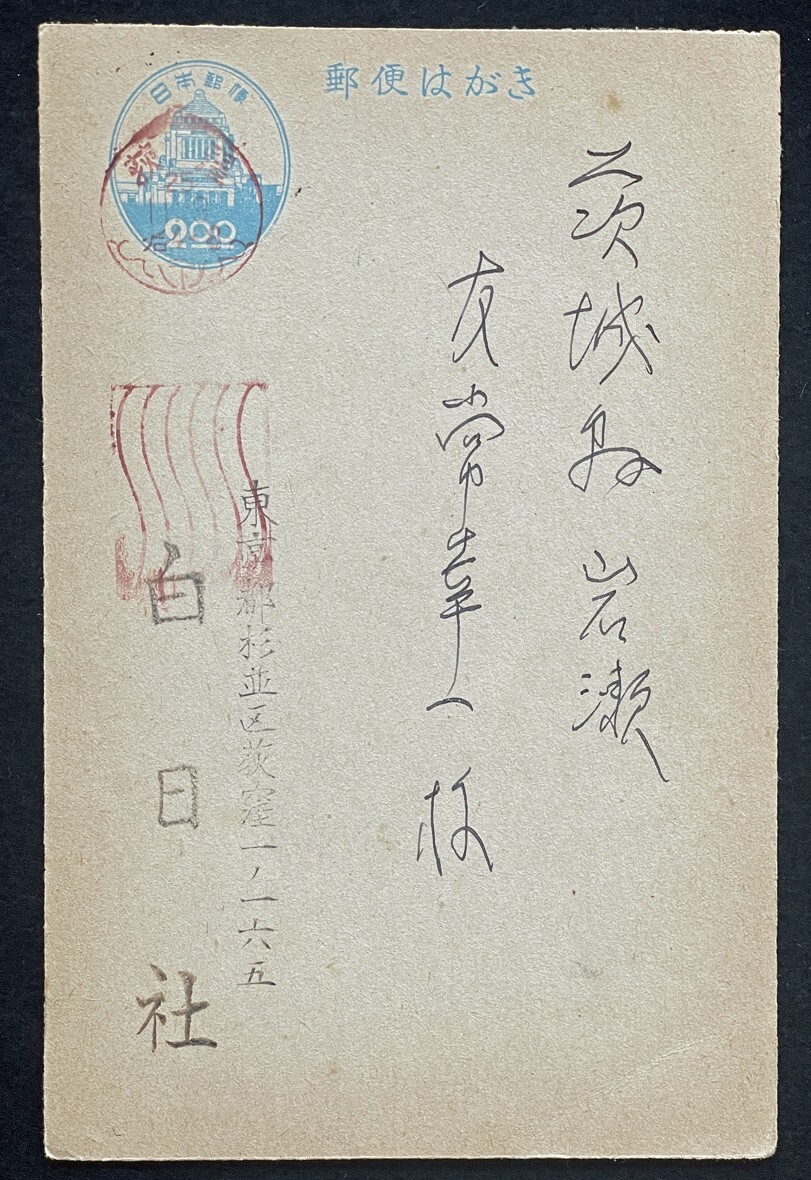 郵便はがき
日本郵便
2.00
茨城県岩瀬
友常幸一様
東京都杉並区荻窪一ノ一六五
白日社